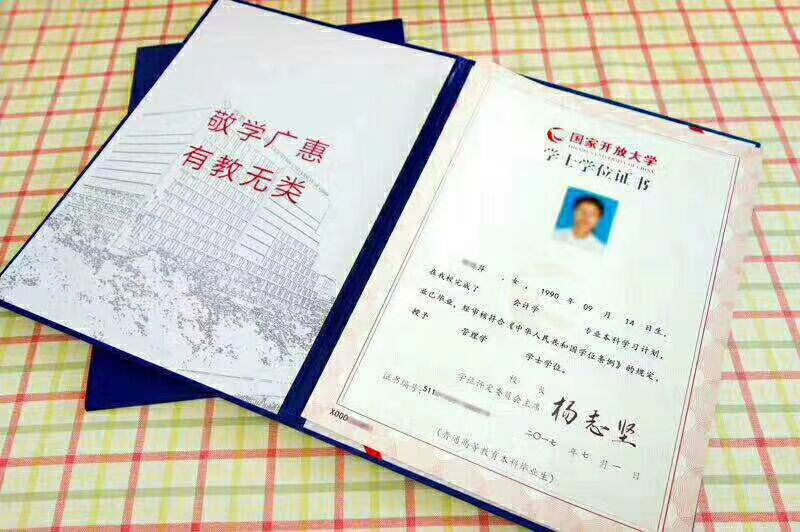 敬学广惠
有教无类
国家开放大学
THE OPEN UNIVERSITY OF CHINA
学士学位证书
萍 ，女，1990 年 09 月 14 日生。
在我校完成了 会计学 专业本科学习计划，
业已毕业，经审核符合《中华人民共和国学位条例》的规定，
授予 管理学 学士学位。
校 长
学位评定委员会主席 杨志坚
证书编号：511
二〇一七 年 七 月 一 日
X000
（普通高等教育本科毕业生）